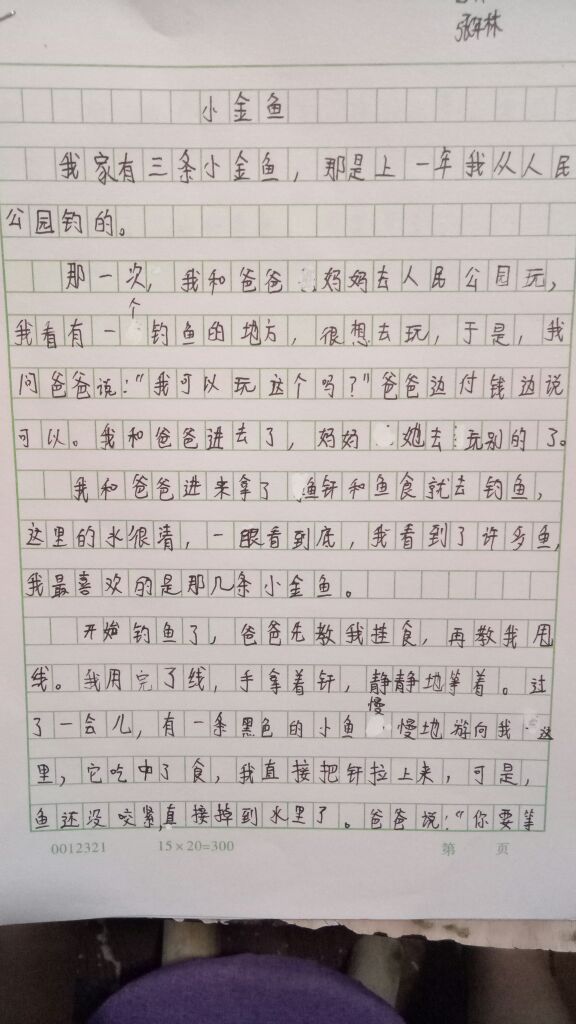 张年林
小金鱼
我家有三条小金鱼，那是上一年我从人民
公园钓的。
那一次，我和爸爸妈妈去人民公园玩，
我看有一个钓鱼的地方，很想去玩，于是，我
问爸爸说："我可以玩这个吗？"爸爸边付钱边说
可以。我和爸爸进去了，妈妈她去玩别的了。
我和爸爸进来拿了渔钎和鱼食就去钓鱼，
这里的水很清，一眼看到底，我看到了许多鱼，
我最喜欢的是那几条小金鱼。
开始钓鱼了，爸爸先教我挂食，再教我甩
线。我甩完了线，手拿着钎，静静地等着。过
了一会儿，有一条黑色的小鱼慢慢地游向我这
里，它吃中了食，我直接把钎拉上来，可是，
鱼还没咬紧，直接掉到水里了。爸爸说："你要等
0012321 15×20=300 第 页